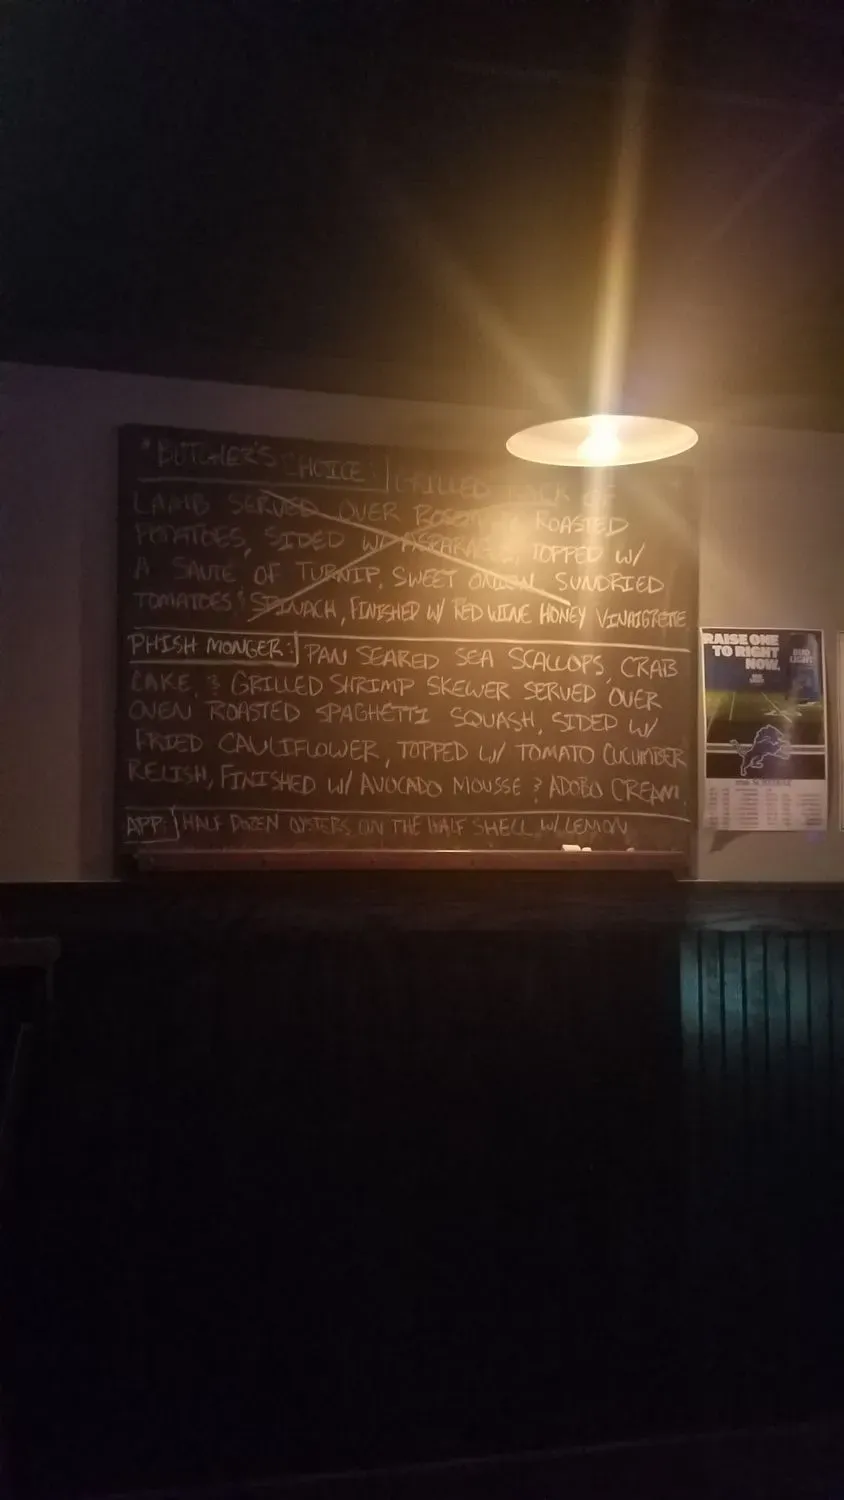 "BUTCHER'S CHOICE: GRILLED RACK OF
LAMB SERVED OVER ROASTED
POTATOES, SIDED W/ ASPARAGUS, TOPPED W/
A SAUTE OF TURNIP, SWEET ONION, SUNDRIED
TOMATOES & SPINACH, FINISHED W/ RED WINE HONEY VINAIGRETTE
PHISH MONGER: PAN SEARED SEA SCALLOPS, CRAB
CAKE, & GRILLED SHRIMP SKEWER SERVED OVER
OVEN ROASTED SPAGHETTI SQUASH, SIDED W/
FRIED CAULIFLOWER, TOPPED W/ TOMATO CUCUMBER
RELISH, FINISHED W/ AVOCADO MOUSSE & ADOBO CREAM
APP: HALF DOZEN OYSTERS ON THE HALF SHELL W/ LEMON
RAISE ONE
TO RIGHT
NOW.
BUD
LIGHT
SCHEDULE